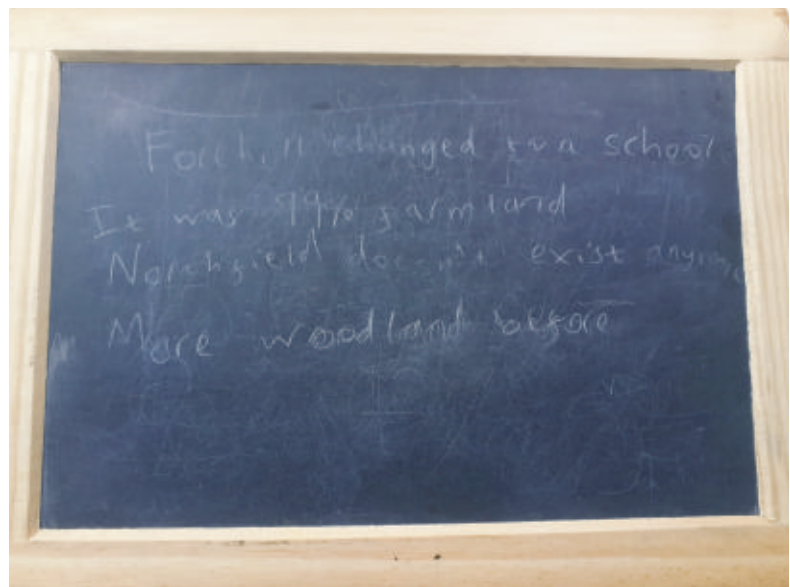 Forthill changed to a school
It was 99% farmland
Northfield doesn't exist anymore
More woodland before